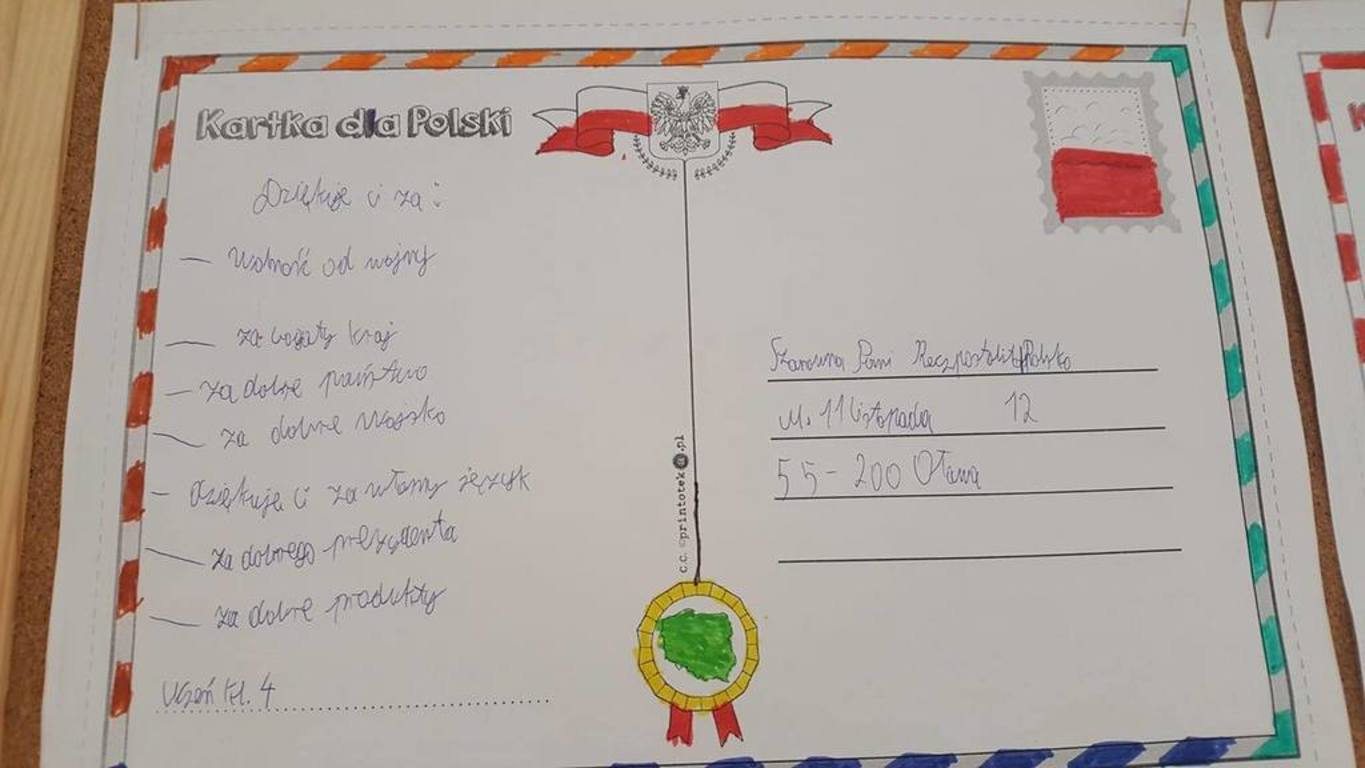 Kartka dla Polski
Dziękuje ci za:
— Wolność od wojny
— za bogaty kraj
— za dobre państwo
— za dobre wojsko
— dziękuje ci za własny język
— za dobrego prezydenta
— za dobre produkty
Uczeń kl. 4
c.c. ©printoteka.pl
Szanowna Pani Reczpospolita Polska
ul. 11 listopada 12
55-200 Oława